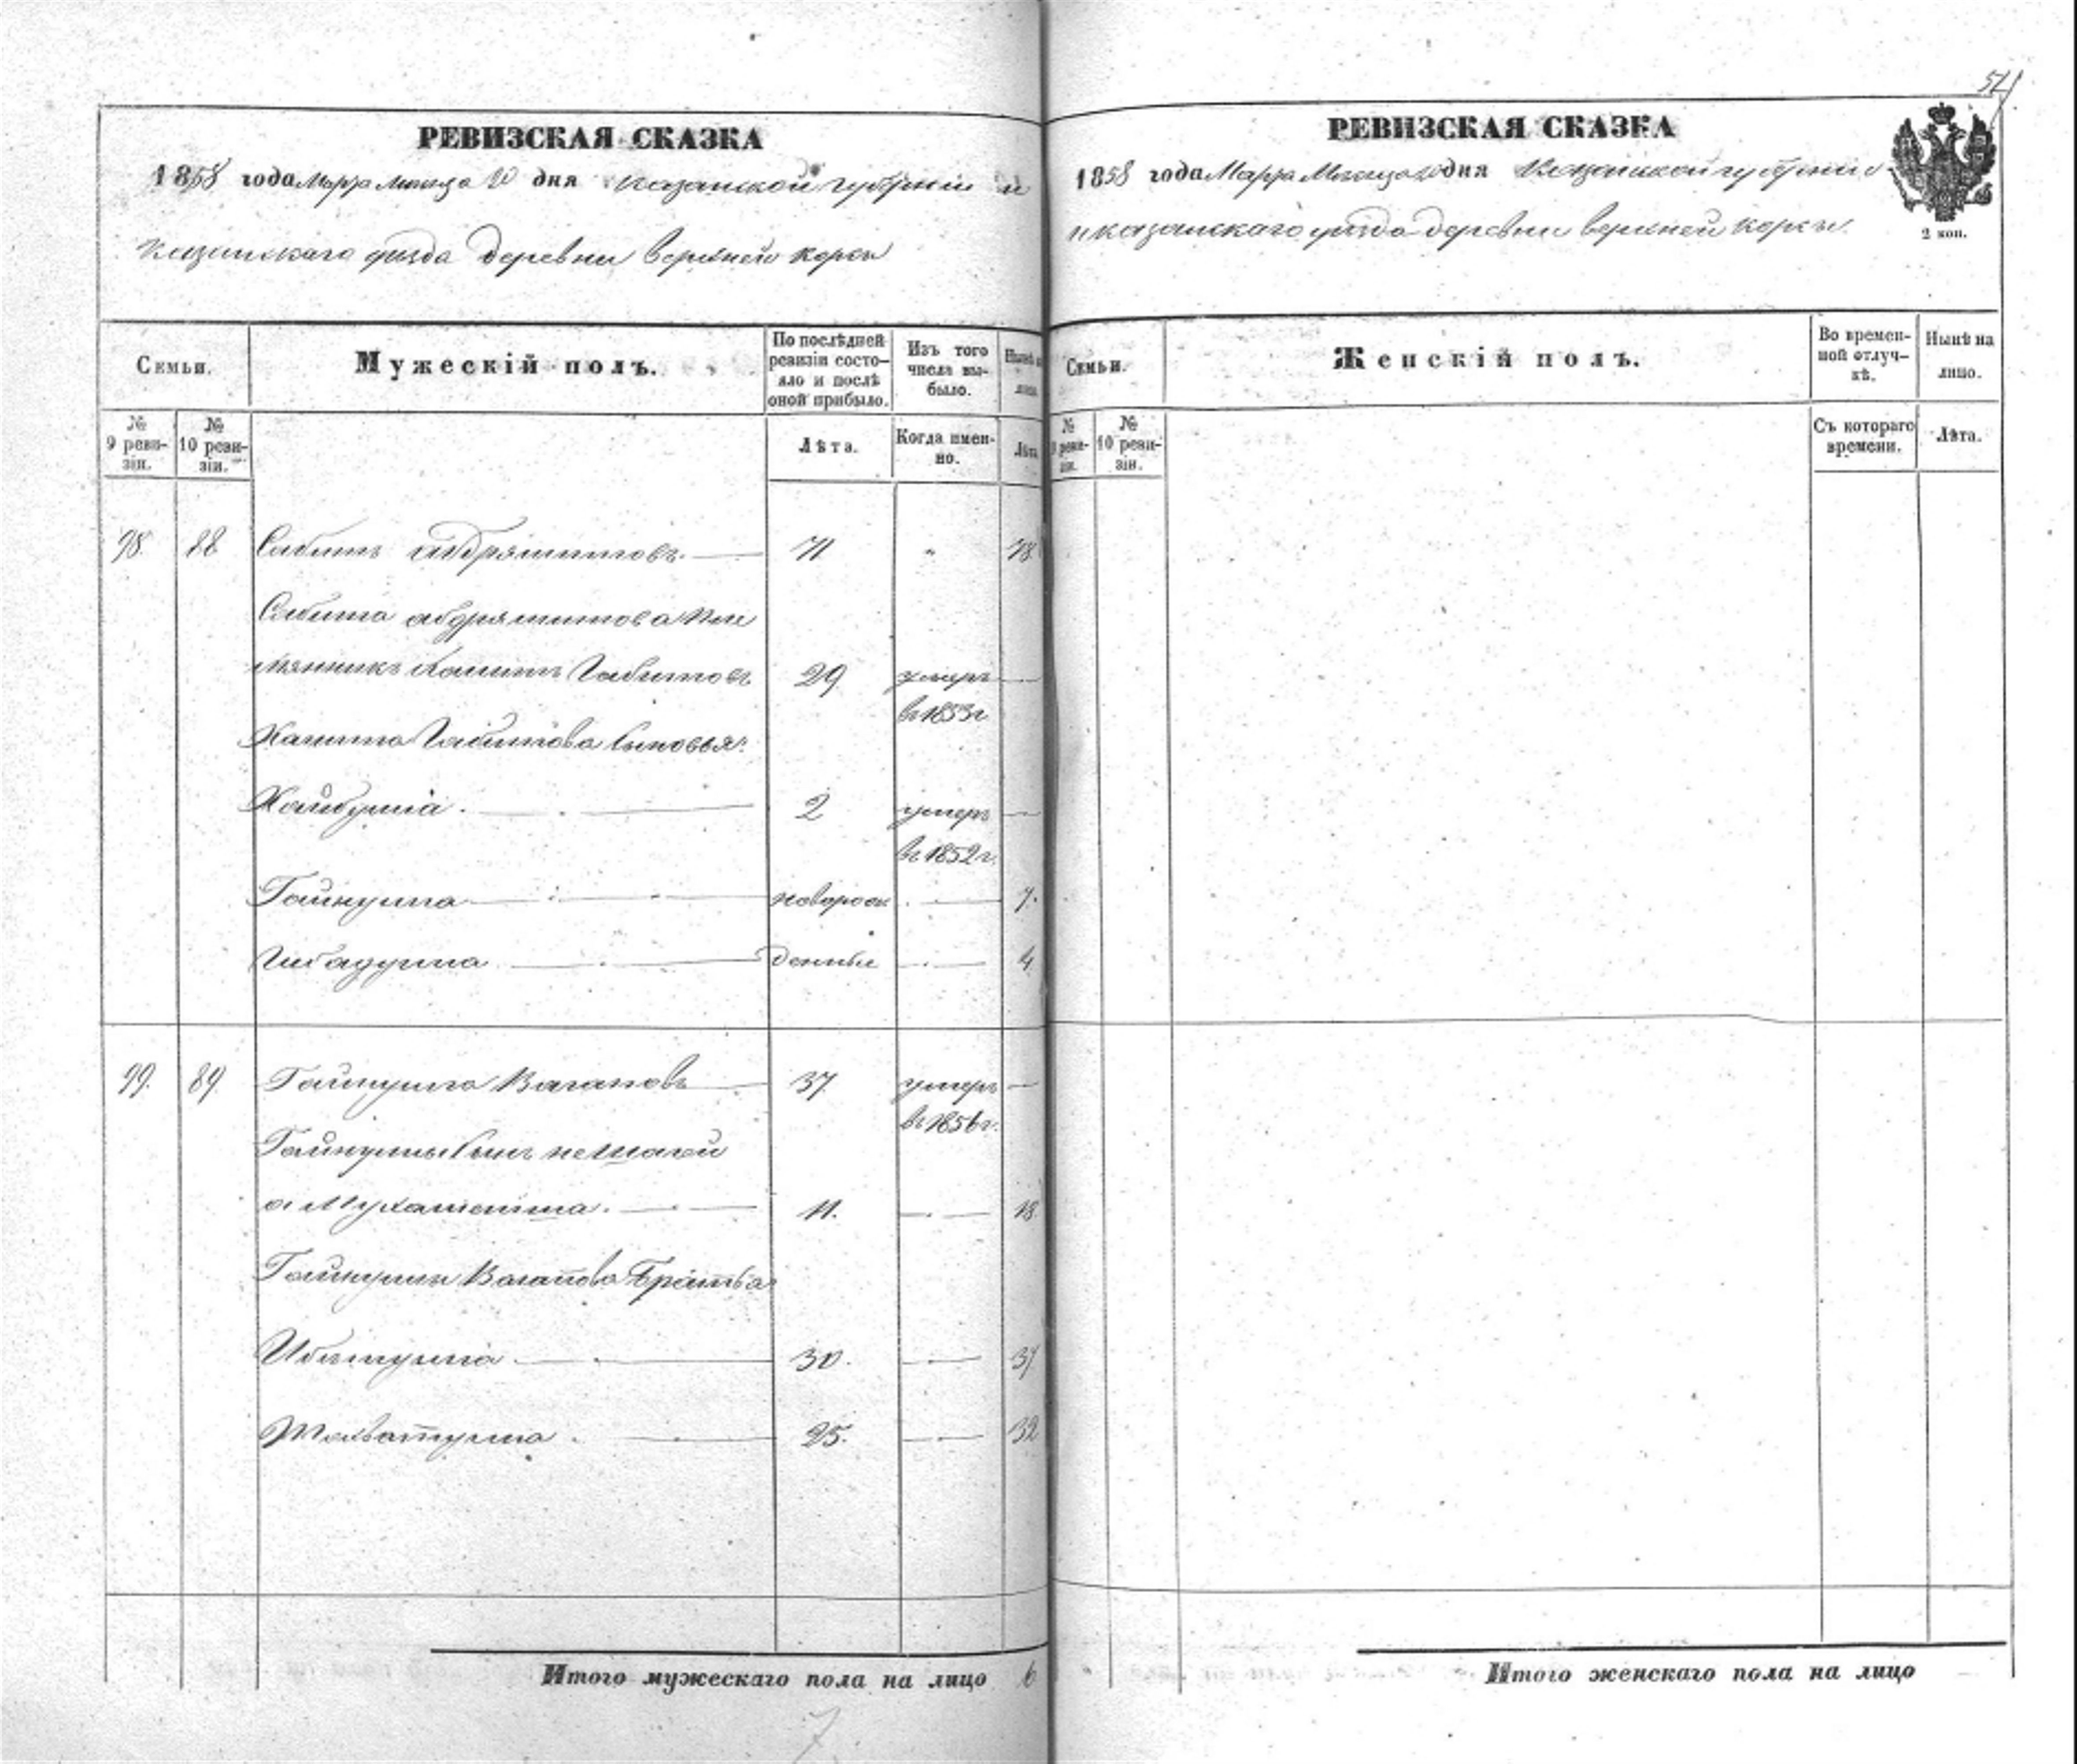 51
РЕВИЗСКАЯ СКАЗКА
1858 года Марта месяца 20 дня Казанской губернии и
Казанскаго уезда деревни верхней корсы
Семьи.
Мужескій полъ.
По послѣдней ревизіи состояло и послѣ оной прибыло.
Изъ того числа выбыло.
Нынѣ
№ 9 ревизіи.
№ 10 ревизіи.
Лѣта.
Когда именно.
Лѣта
98. 88 Сабитъ абдряшитовъ. 71 " 78.
Сабита абдряшитова пле
мянникъ Хамитъ Габитовъ 29 умеръ
въ 1853 г.
Хамита Габитова сыновья:
Хайбулла. 2 умеръ
въ 1852 г.
Гайнулла новорож 7.
Гибадулла денные 4
99. 89. Гайнулла Вагаповъ 37 умеръ
въ 1856 г.
Гайнуллы сынъ
а Мухаметша. 11. 18.
Гайнуллы Вагапова Братья
30. 37.
25. 32
Итого мужескаго пола на лицо 6
7
РЕВИЗСКАЯ СКАЗКА
1858 года Марта Месяца 20 дня Казанской губернии
и казанскаго уезда деревни верхней корсы.
2 коп.
Семьи.
Женскій полъ.
Во временной отлучкѣ.
Нынѣ на лицо.
№ 9 ревизіи.
№ 10 ревизіи.
Съ котораго времени.
Лѣта.
Итого женскаго пола на лицо